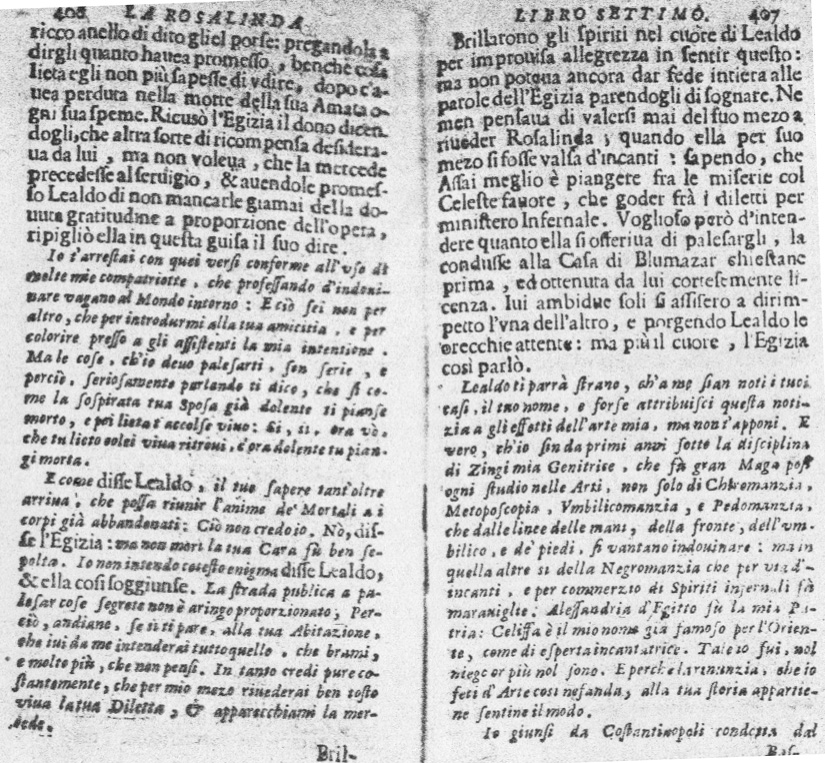 406 LA ROSALINDA
ricco anello di dito gliel porse: pregandola a
dirgli quanto hauea promesso, benche cosa
lieta egli non più sapesse di vdire, dopo ch'a-
uea perduta nella morte della sua Amata o-
gni sua speme. Ricusò l'Egizia il dono dicen-
dogli, che altra sorte di ricompensa desidera-
ua da lui, ma non voleua, che la mercede
precedesse al seruigio, & auendole promes-
so Lealdo di non mancarle giamai della do-
uuta gratitudine a proporzione dell'opera,
ripigliò ella in questa guisa il suo dire.
Io t'arrestai con quei versi conforme all'vso di
molte mie compatriotte, che professando d'indoui-
nare vagano al Mondo intorno: E ciò fei non per
altro, che per introdurmi alla tua amicitia, e per
colorire presso a gli assistenti la mia intentione.
Ma le cose, ch'io deuo palesarti, son serie, e
perciò, seriosamente parlando ti dico, che si co-
me la sospirata tua Sposa già dolente ti pianse
morto, e poi lieta t'accolse viuo: Si, si, ora vò,
che tu lieto colei viua ritroui, c'ora dolente tu pian-
gi morta.
E come disse Lealdo, il tuo sapere tant'oltre
arriua, che possa riunir l'anime de' Mortali a i
corpi già abbandonati: Ciò non credo io. Nò, dis-
se l'Egizia: ma non morì la tua Cara fù ben se-
polta. Io non intendo cotesto enigma disse Lealdo,
& ella così soggiunse. La strada publica a pa-
lesar cose segrete non è aringo proporzionato, Per-
ciò, andiane, se ti ti pare, alla tua Abitazione,
che iui da me intenderai tutto quello, che brami,
e molto più, che non pensi. In tanto credi pure co-
stantemente, che per mio mezo riuederai ben tosto
viua la tua Diletta, & apparecchiami la mer-
cede.
Bril-
LIBRO SETTIMO. 407
Brillarono gli spiriti nel cuore di Lealdo
per improuisa allegrezza in sentir questo:
ma non potqua ancora dar fede intiera alle
parole dell'Egizia parendogli di sognare. Ne
men pensaua di valersi mai del suo mezo a
riueder Rosalinda; quando ella per suo
mezo si fosse valsa d'incanti: sapendo, che
Assai meglio è piangere fra le miserie col
Celeste fauore, che goder frà i diletti per
ministero Infernale. Voglioso però d'inten-
dere quanto ella si offeriua di palesargli, la
condusse alla Casa di Blumazar chiestane
prima, ed ottenuta da lui cortesemente li-
cenza. Iui ambidue soli si assisero a dirim-
petto l'vna dell'altro, e porgendo Lealdo le
orecchie attente: ma più il cuore, l'Egizia
così parlò.
Lealdo ti parrà strano, ch'a me sian noti i tuoi
casi, il tuo nome, e forse attribuisci questa noti-
zia a gli effetti dell'arte mia, ma non t'apponi. E
vero, ch'io sin da primi anni sotto la disciplina
di Zingi mia Genitrice, che fù gran Maga posi
ogni studio nelle Arti, non solo di Chiromanzia,
Metoposcopia, Vmbilicomanzia, e Pedomanzia,
che dalle linee delle mani, della fronte, dell'vm-
bilico, e de' piedi, si vantano indouinare: ma in
quella altre sì della Negromanzia che per via d'-
incanti, e per commerzio di Spiriti infernali fà
marauiglie. Alessandria d'Egitto fù la mia Pa-
tria: Celiffa è il mio nome già famoso per l'Orien-
te, come di esperta incantatrice. Tale io fui, nol
niego or più nol sono. E perche la rinunzia, che io
feci d'Arte così nefanda, alla tua storia appartie-
ne sentine il modo.
Io giunsi da Costantinopoli condotta dal
Bas-